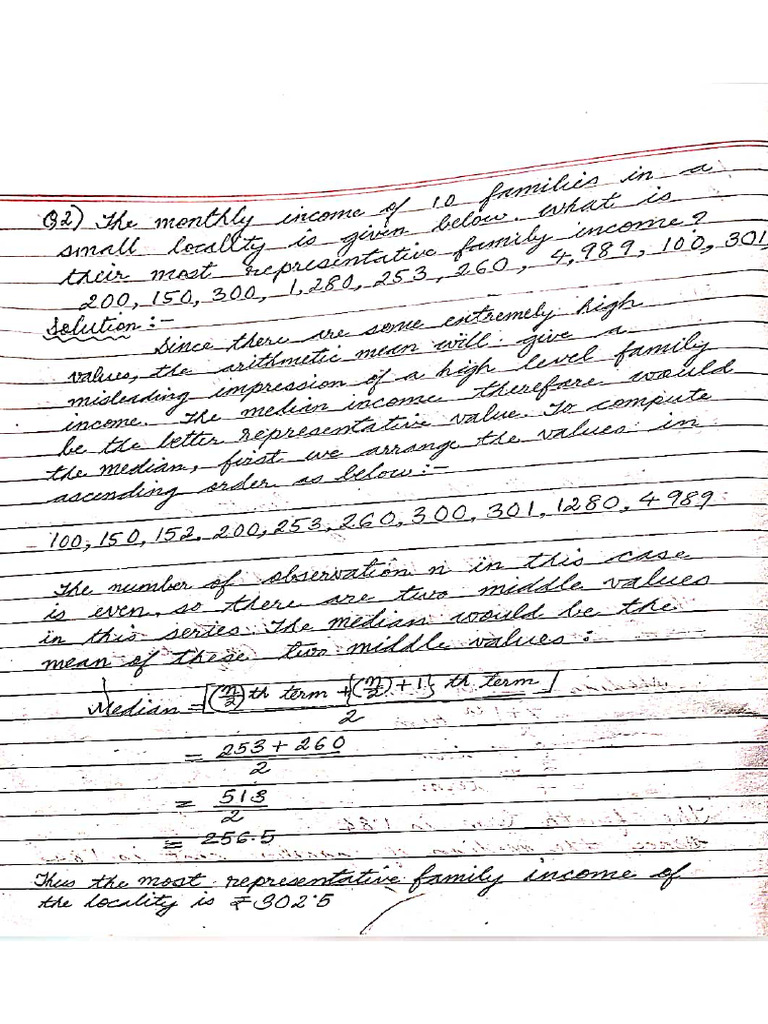 Q2) The monthly income of 10 families in a
small locality is given below. What is
their most representative family income?
200, 150, 300, 1,280, 253, 260, 4,989, 100, 301
Solution :-
Since there are some extremely high
values, the arithmetic mean will give a
misleading impression of a high level family
income. The median income therefore would
be the better representative value. To compute
the median, first we arrange the values in
ascending order as below :-
100, 150, 152, 200, 253, 260, 300, 301, 1280, 4989
The number of observation n in this case
is even, so there are two middle values
in this series. The median would be the
mean of these two middle values :
Median = [(n/2)th term + {(n/2) + 1} th term] / 2
= 253 + 260 / 2
= 513 / 2
= 256.5
Thus the most representative family income of
the locality is ₹ 302.5